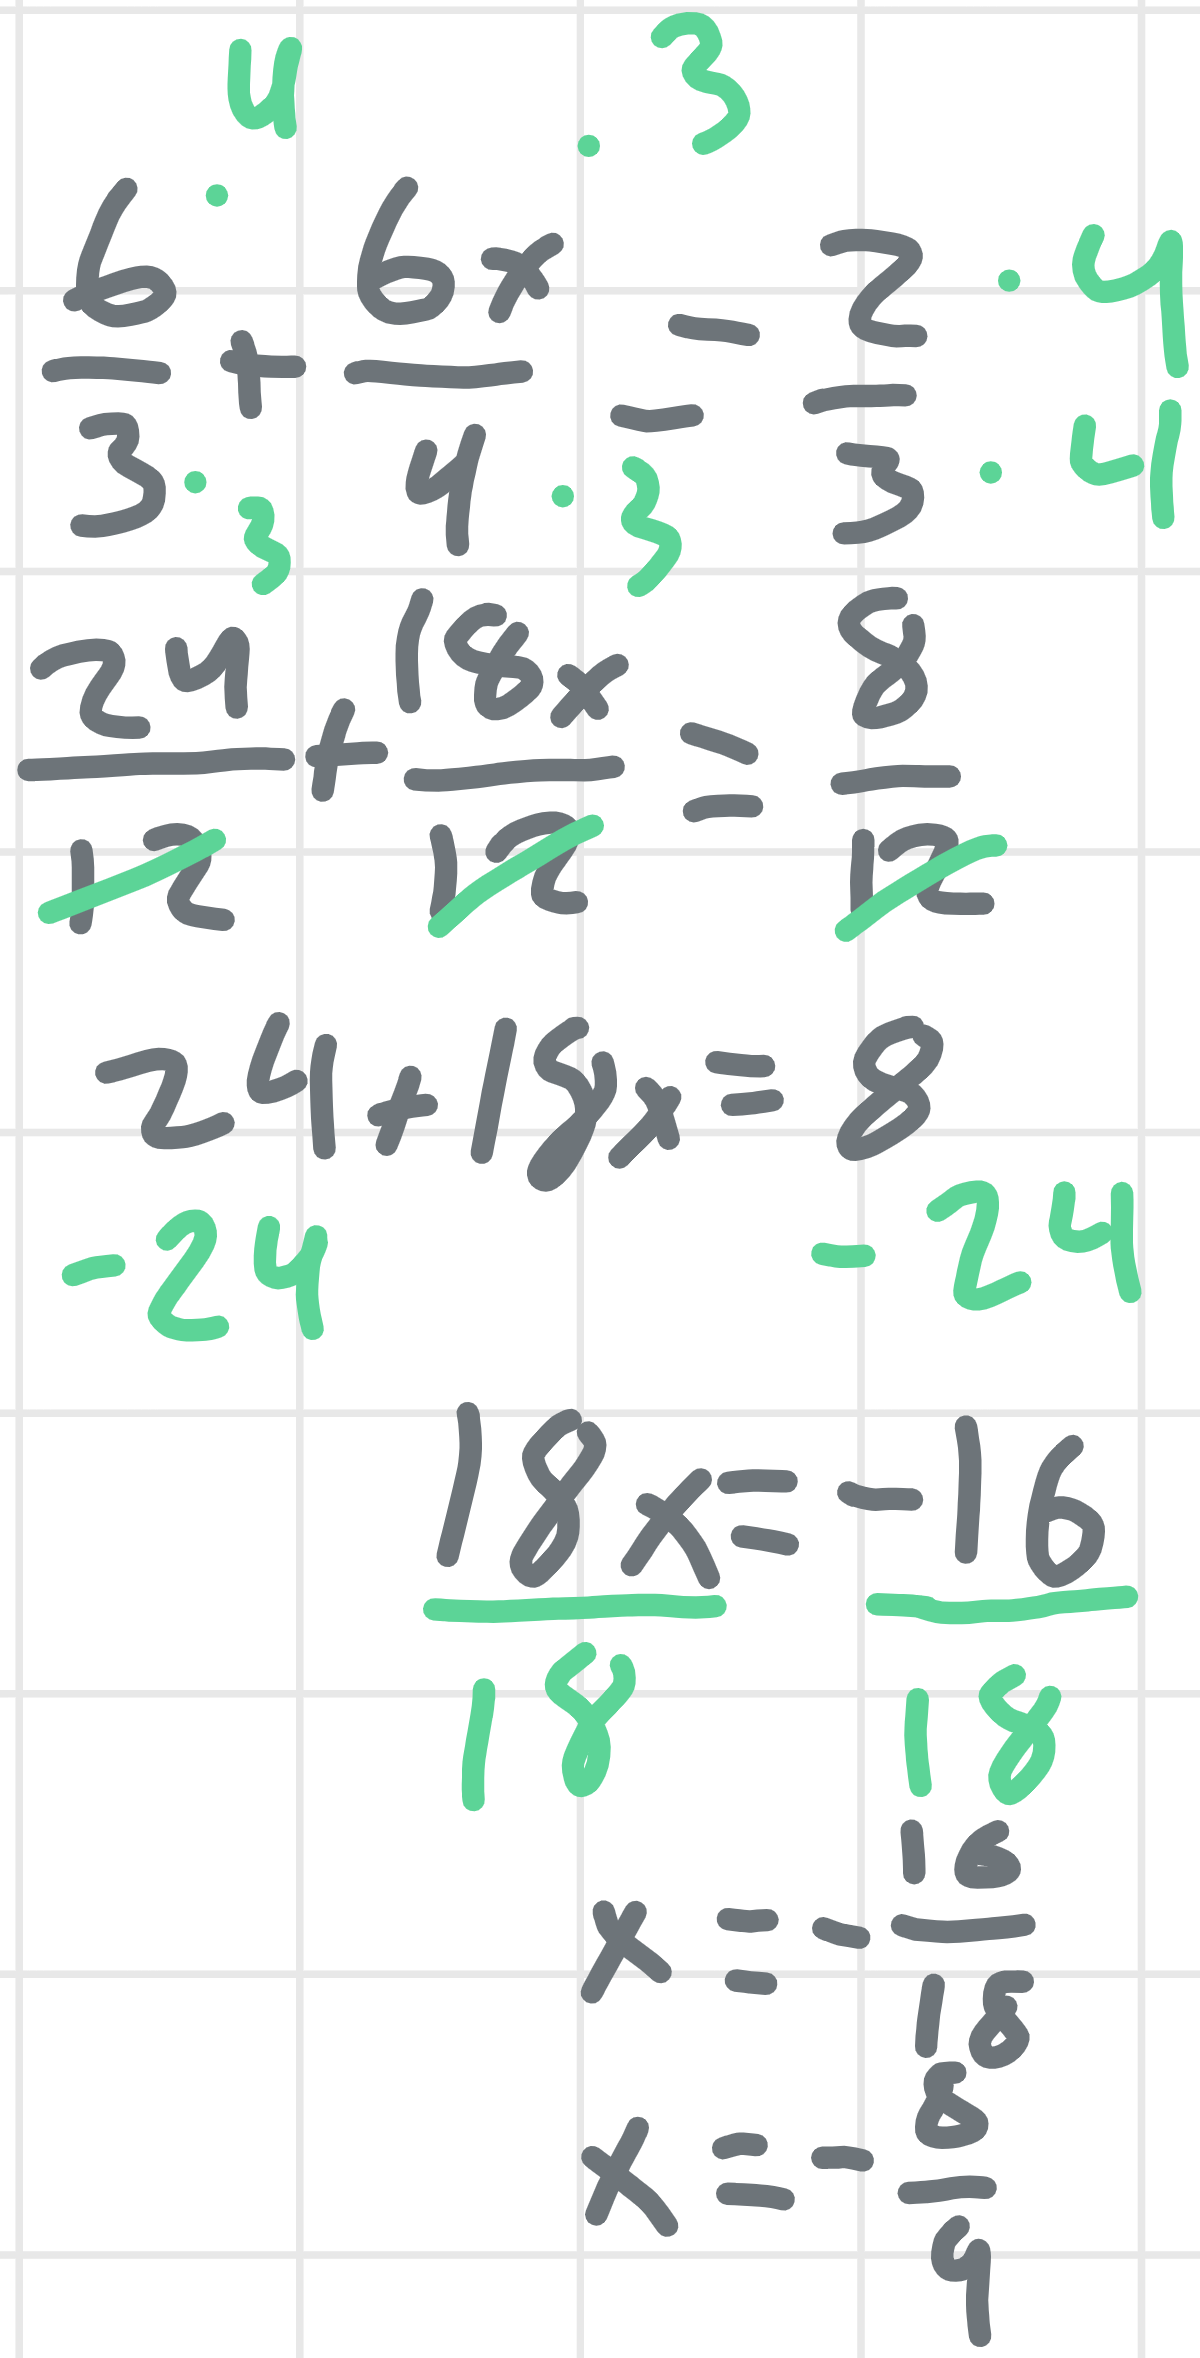 6/3 · 4/3 + 6x/4 · 3/3 = 2/3 · 4/4
24/12 + 18x/12 = 8/12
24+18x=8
-24 -24
18x/18 = -16/18
x = -16/18
x = -8/9